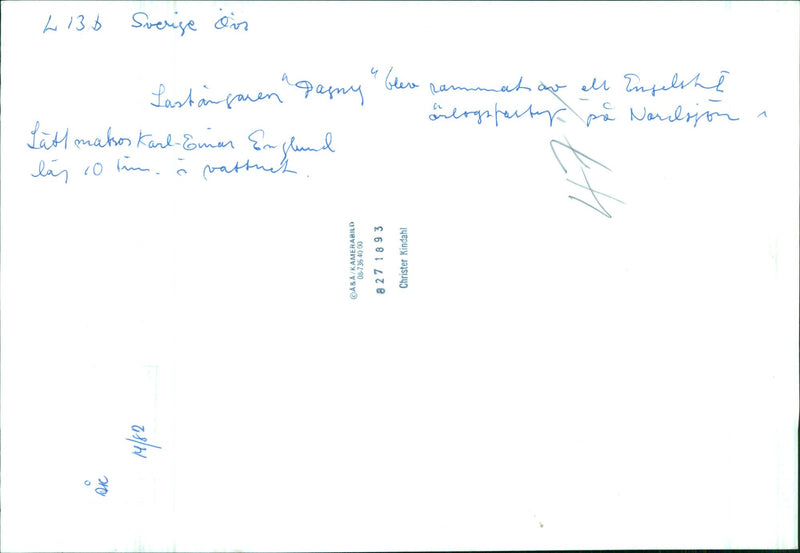 L 13 b Sverige Övr
Lastångaren "Dagny" blev rammats av ett Engelskt
örlogsfartyg på Nordsjön
Lättmatros Karl-Einar Englund
låg 10 tim. i vattnet.
47
©A&A/KAMERABILD
08-736 40 00
8271893
Christer Kindahl
14/82
ÅK